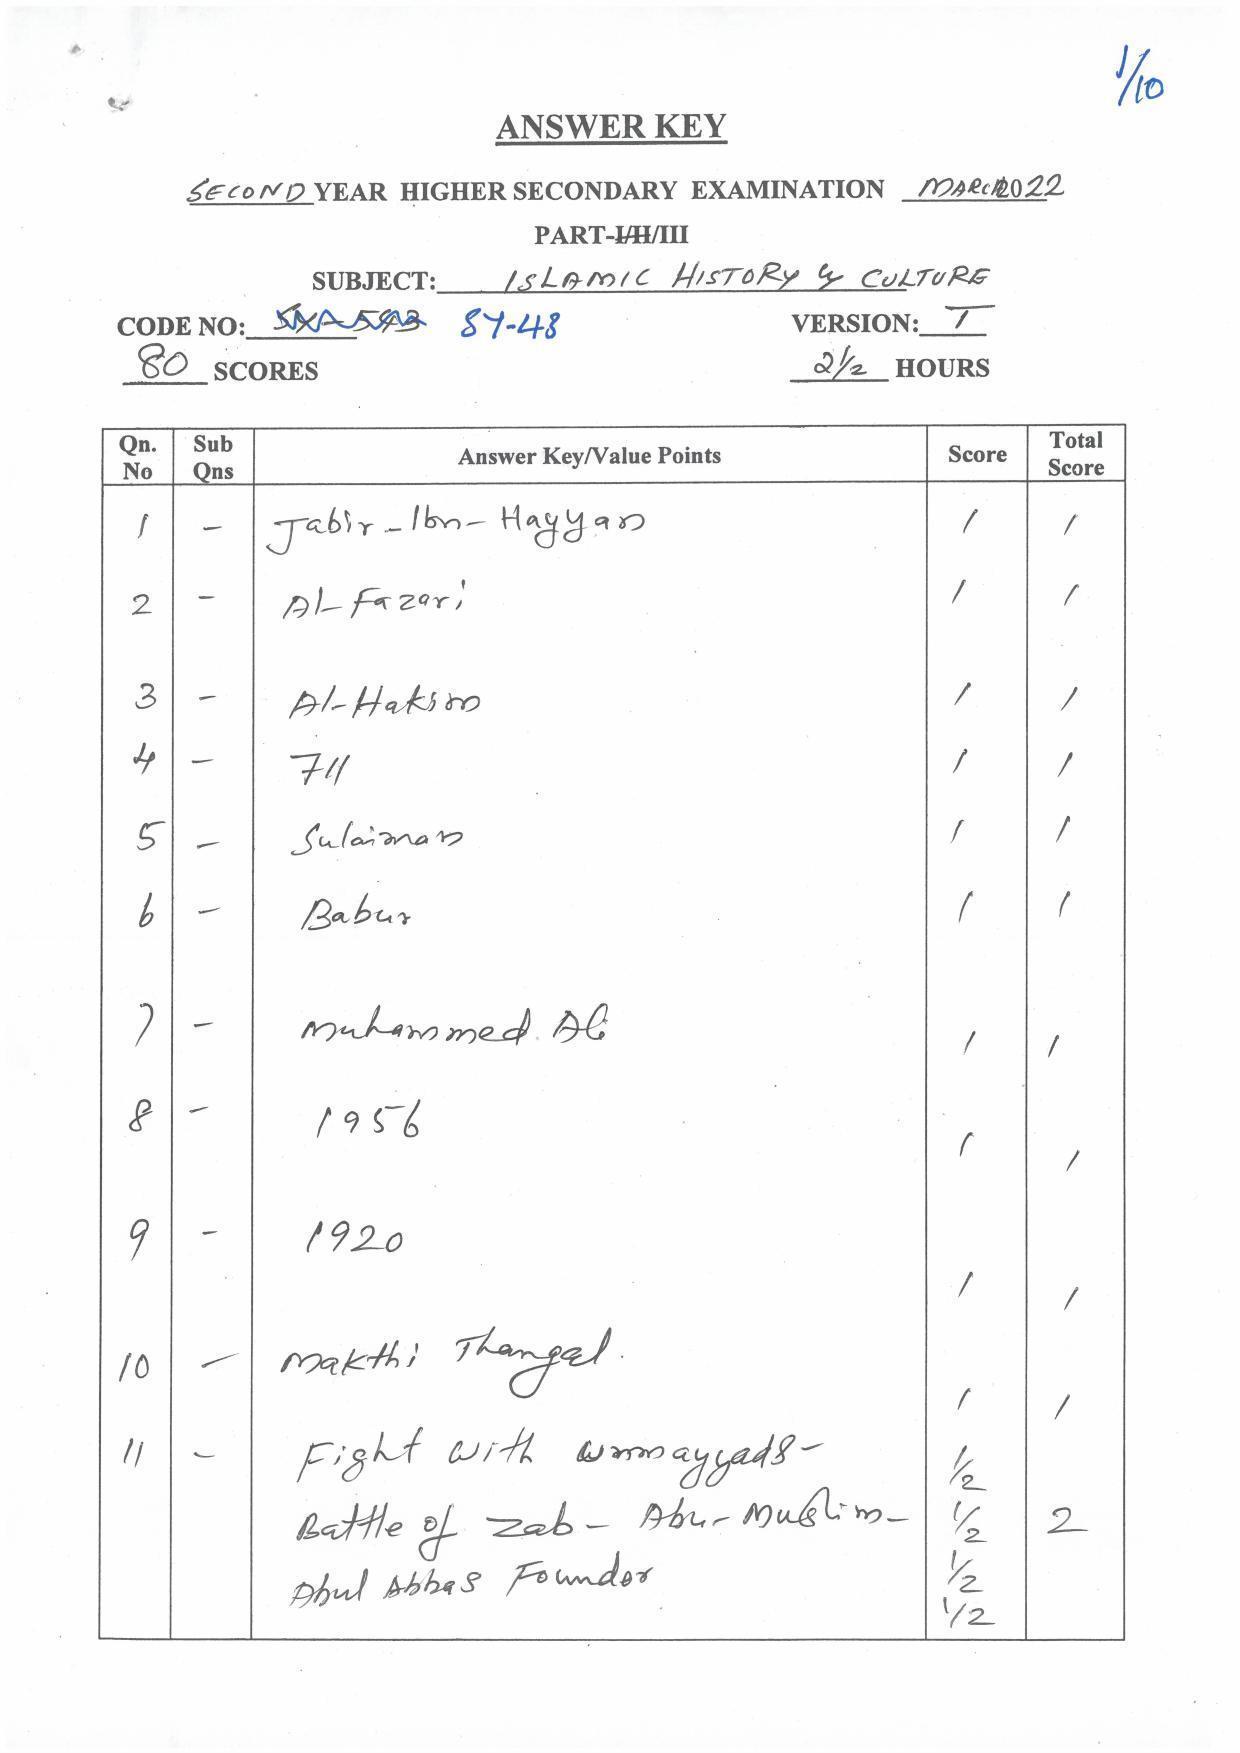 1/10
ANSWER KEY
SECOND YEAR HIGHER SECONDARY EXAMINATION MARCH 2022
PART-I/II/III
SUBJECT: ISLAMIC HISTORY & CULTURE
CODE NO: SY-48 VERSION: I
80 SCORES 2 1/2 HOURS
Qn. No Sub Qns Answer Key/Value Points Score Total Score
1 - Jabir-Ibn-Hayyan 1 1
2 - Al-Fazari 1 1
3 - Al-Hakim 1 1
4 - 711 1 1
5 - Sulaiman 1 1
6 - Babur 1 1
7 - Muhammed Ali 1 1
8 - 1956 1 1
9 - 1920 1 1
10 - Makthi Thangal. 1 1
11 - Fight with Ummayyads- 1/2
Battle of Zab- Abu-Muslim- 1/2 2
Abul Abbas Founder 1/2
1/2